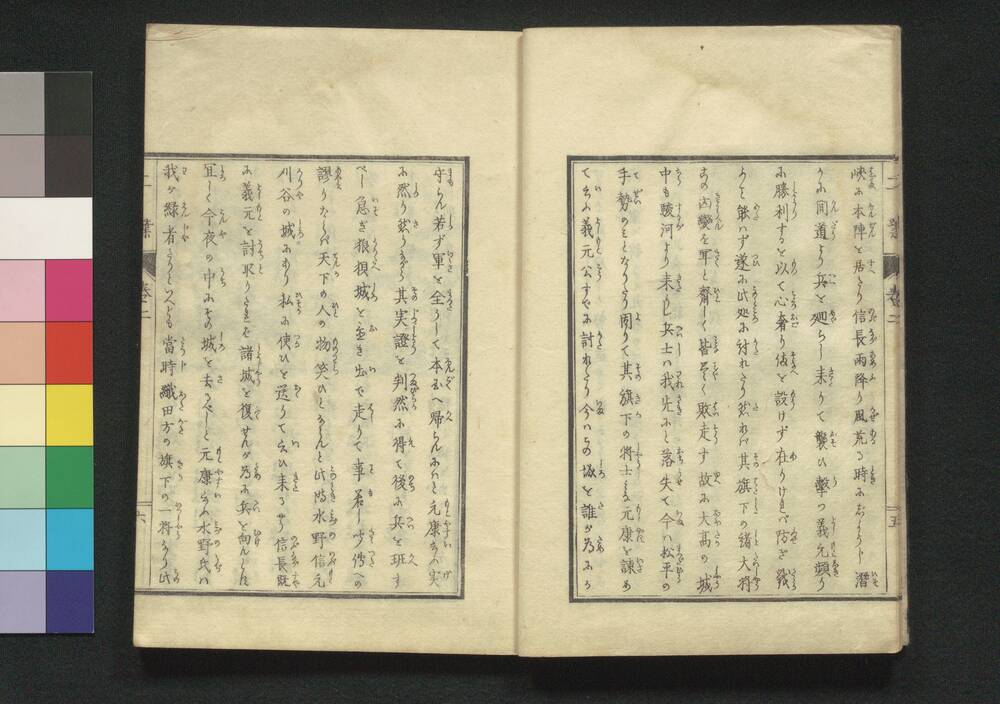 峽に本陣を居たり信長雨降り風荒る時におよう〳〵潛
かに间道より兵を廻らし来りて襲ひ擊つ義元頻り
に勝利するを以て心奢り備を設けず在りければ防き戰
ふと能はず遂に此処に討れたり然れば其旗下の緒大將
この内變を耳と齊しく皆尽く敗走す故に大高の城
中も駿河より来りし兵士は我先にと落失て今は松平の
手勢のみとなりたり因りて其旗下の將士ら元康を諫め
て云ふ義元公すでに討れたり今はこの城を誰が為にか
守らん若ず軍を全うして本国へ帰らんにはと元康云ふ実
に然り然りながら其実證を判然に得て後に兵を班す
べし急ぎ狼狽城を逃き出で走りて事若し傳への
謬りならば天下の人の物笑ひとならんと此時水野信元
刈谷の城にあり私に使ひを送りて云ひ来るやう信長既
に義元を討取りたれば諸城を復せんが為に兵を向んとす
宜しく今夜の中にその城を去るべしと元康云ふ水野氏は
我が縁者なりといへども當時織田方の旗下の一将なり此